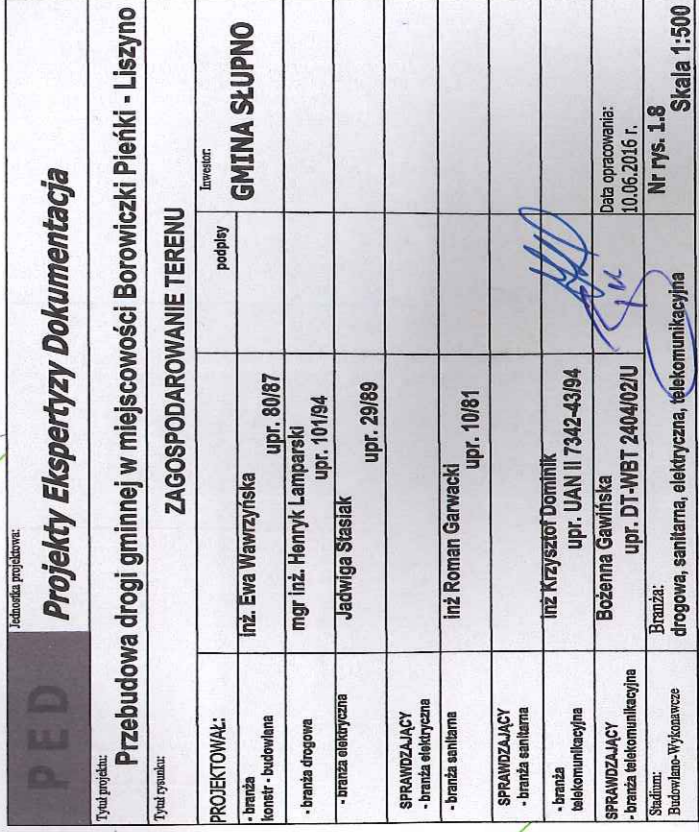 PED
Jednostka projektowa:
Projekty Ekspertyzy Dokumentacja
Tytuł projektu:
Przebudowa drogi gminnej w miejscowości Borowiczki Pieńki - Liszyno
Tytuł rysunku:
ZAGOSPODAROWANIE TERENU
PROJEKTOWAŁ:
podpisy
Inwestor:
GMINA SŁUPNO
- branża
konstr - budowlana
inż. Ewa Wawrzyńska
upr. 80/87
- branża drogowa
mgr inż. Henryk Lamparski
upr. 101/94
- branża elektryczna
Jadwiga Stasiak
upr. 29/89
SPRAWDZAJĄCY
- branża elektryczna
- branża sanitarna
inż Roman Garwacki
upr. 10/81
SPRAWDZAJĄCY
- branża sanitarna
- branża
telekomunikacyjna
inż Krzysztof Dominik
upr. UAN II 7342-43/94
SPRAWDZAJĄCY
- branża telekomunikacyjna
Bożenna Gawińska
upr. DT-WBT 2404/02/U
Data opracowania:
10.06.2016 r.
Stadium:
Budowlano-Wykonawcze
Branża:
drogowa, sanitarna, elektryczna, telekomunikacyjna
Nr rys. 1.8
Skala 1:500